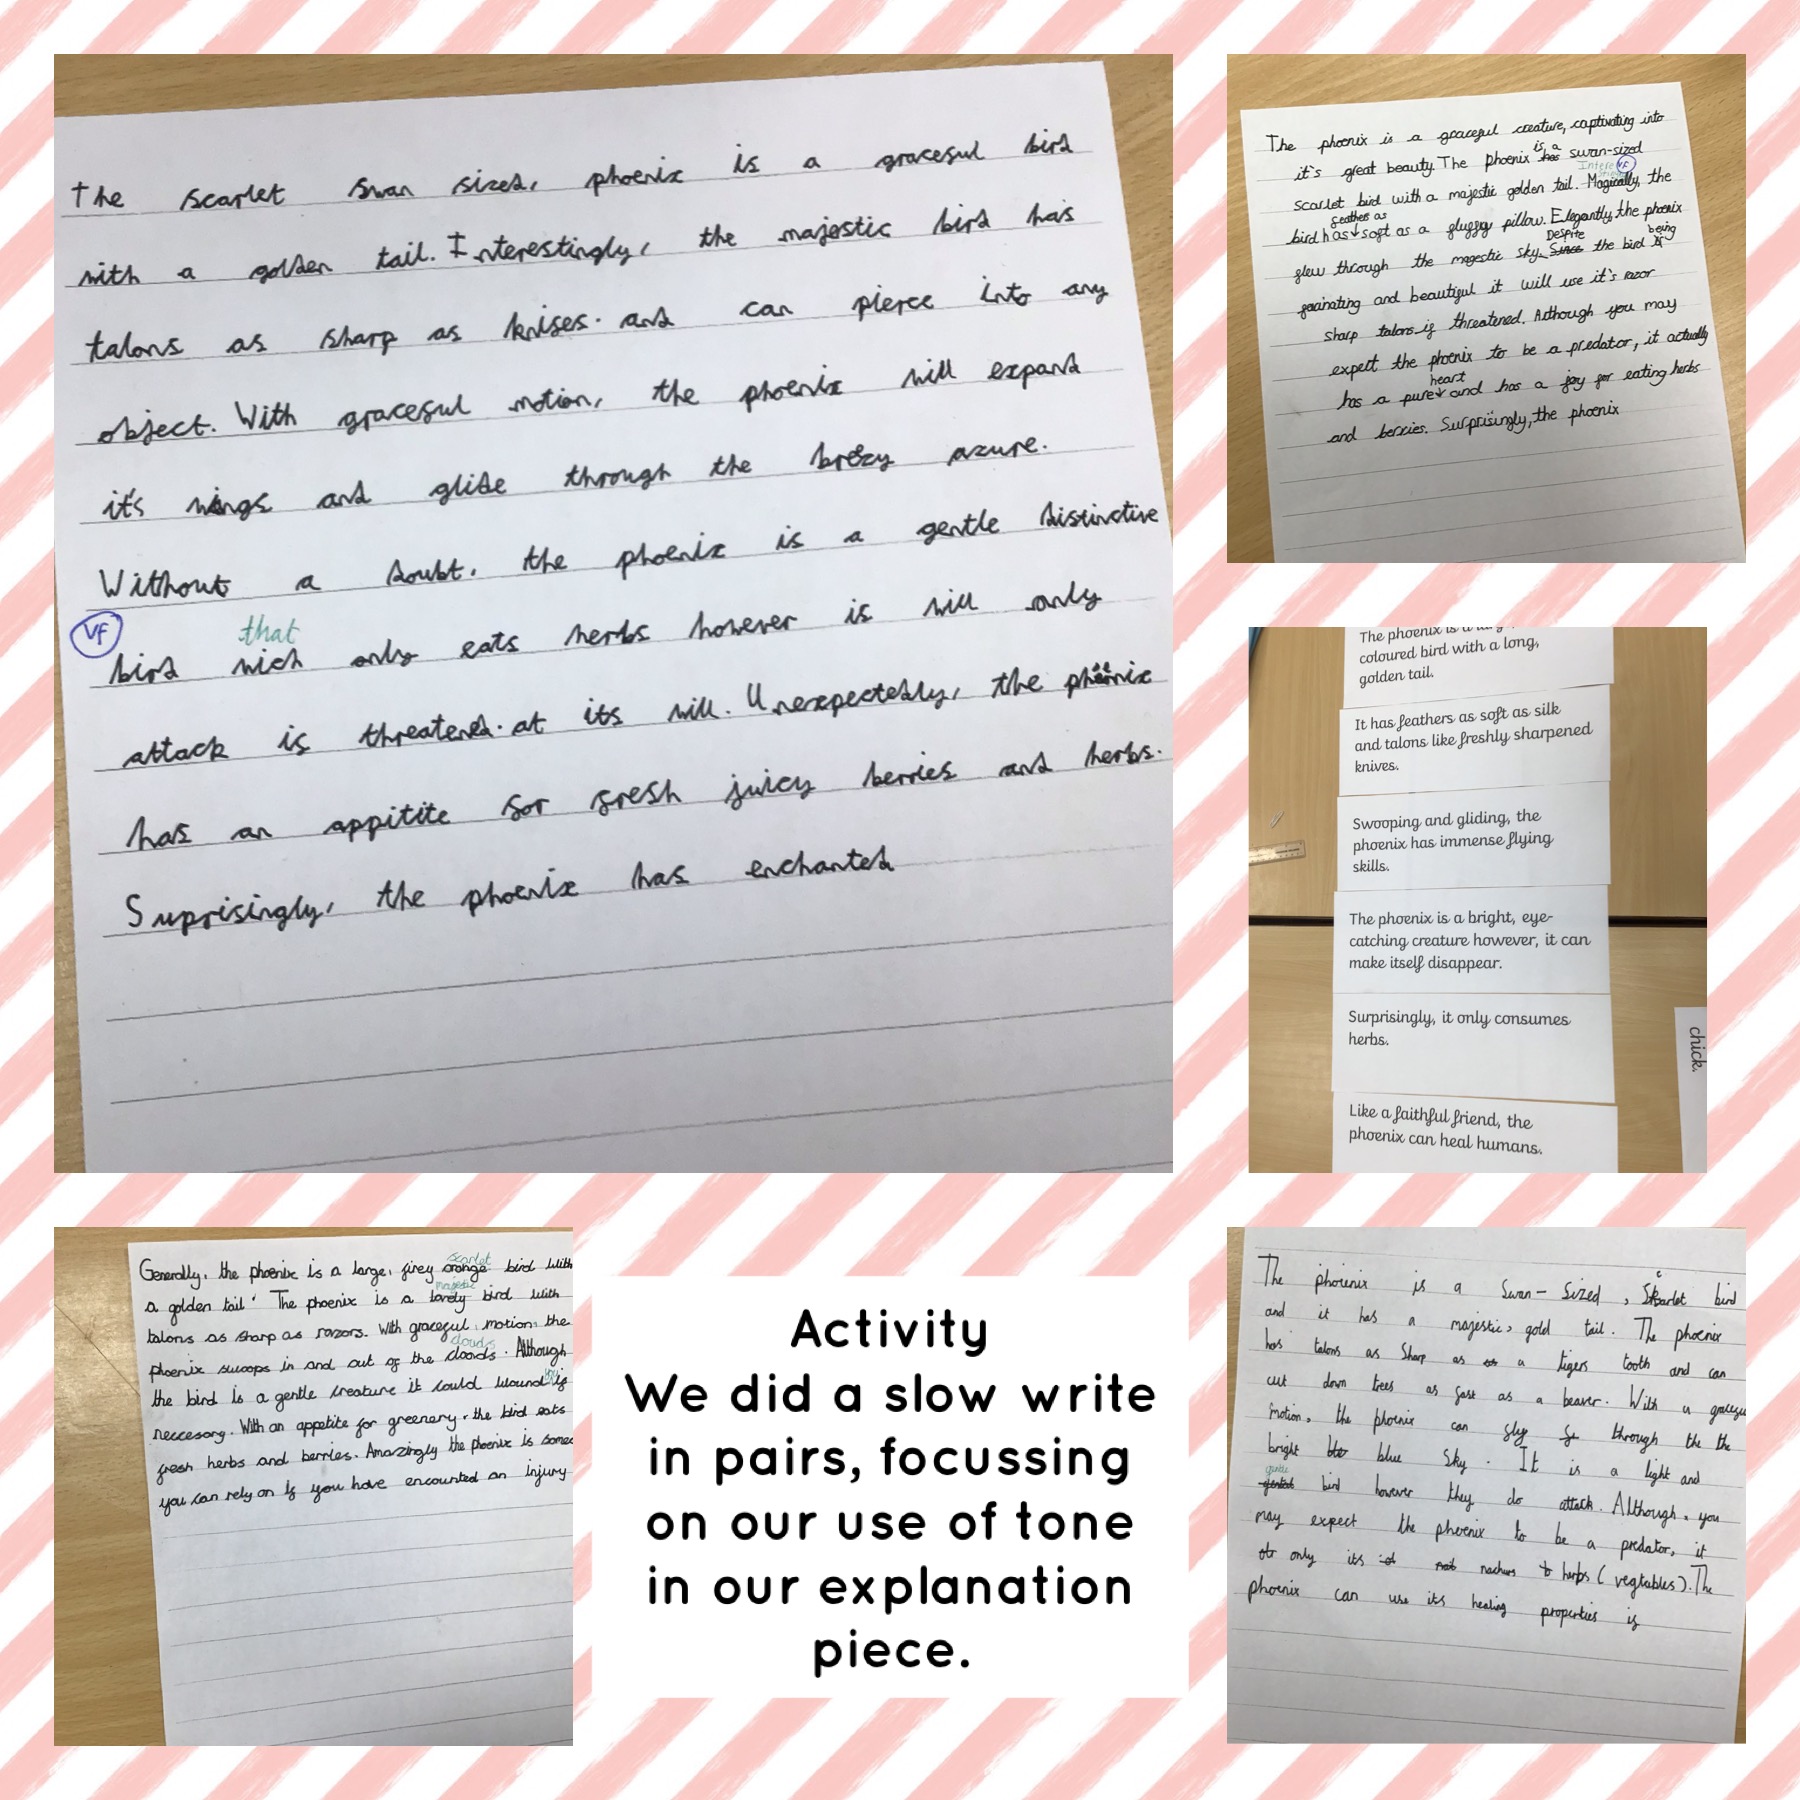 The scarlet swan sized, phoenix is a graceful bird
with a golden tail. Interestingly, the majestic bird has
talons as sharp as knifes. and can pierce into any
object. With graceful motion, the phoenix will expand
it's wings and glide through the brezy azure.
Without a doubt, the phoenix is a gentle distinctive
VF
that
bird wich only eats herbs however is will only
attack is threatened. at its will. Unexpectedly, the phoenix
has an appitite for fresh juicy berries and herbs.
Surprisingly, the phoenix has enchanted
The phoenix is a graceful creature, captivating into
it's great beauty. The phoenix is a has swan-sized
Interestingly VF
scarlet bird with a majestic golden tail. Magically, the
feathers as
bird has soft as a fluffy pillow. Elegantly, the phoenix
Despite being
flew through the magestic sky. Since the bird is
fasinating and beautiful it will use it's razor
sharp talons if threatened. Although you may
expect the phoenix to be a predator, it actually
heart
has a pure and has a joy for eating herbs
and berries. Surprisingly, the phoenix
The phoenix is a
coloured bird with a long,
golden tail.
It has feathers as soft as silk
and talons like freshly sharpened
knives.
Swooping and gliding, the
phoenix has immense flying
skills.
The phoenix is a bright, eye-
catching creature however, it can
make itself disappear.
Surprisingly, it only consumes
herbs.
chick.
Like a faithful friend, the
phoenix can heal humans.
scarlet
Generally, the phoenix is a large, firey orange bird with
majestic
a golden tail. The phoenix is a lovely bird with
talons as sharp as razors. With graceful motion, the
clouds
phoenix swoops in and out of the cloods. Although
you
the bird is a gentle creature it could wound if
neccesary. With an appetite for greenery, the bird eats
fresh herbs and berries. Amazingly the phoenix is some
you can rely on if you have encounted an injury
Activity
We did a slow write
in pairs, focussing
on our use of tone
in our explanation
piece.
The phoienix is a Swan-Sized, Scarlet bird
and it has a majestic, gold tail. The phoenix
has talons as sharp as a tigers tooth and can
cut down trees as fast as a beaver. With a graceful
motion, the phoenix can fly through the the
bright blue sky. It is a light and
gentle
bird however they do attack. Although, you
may expect the phoenix to be a predator, it
only its not herbs (vegtables). The
phoenix can use its healing properties if